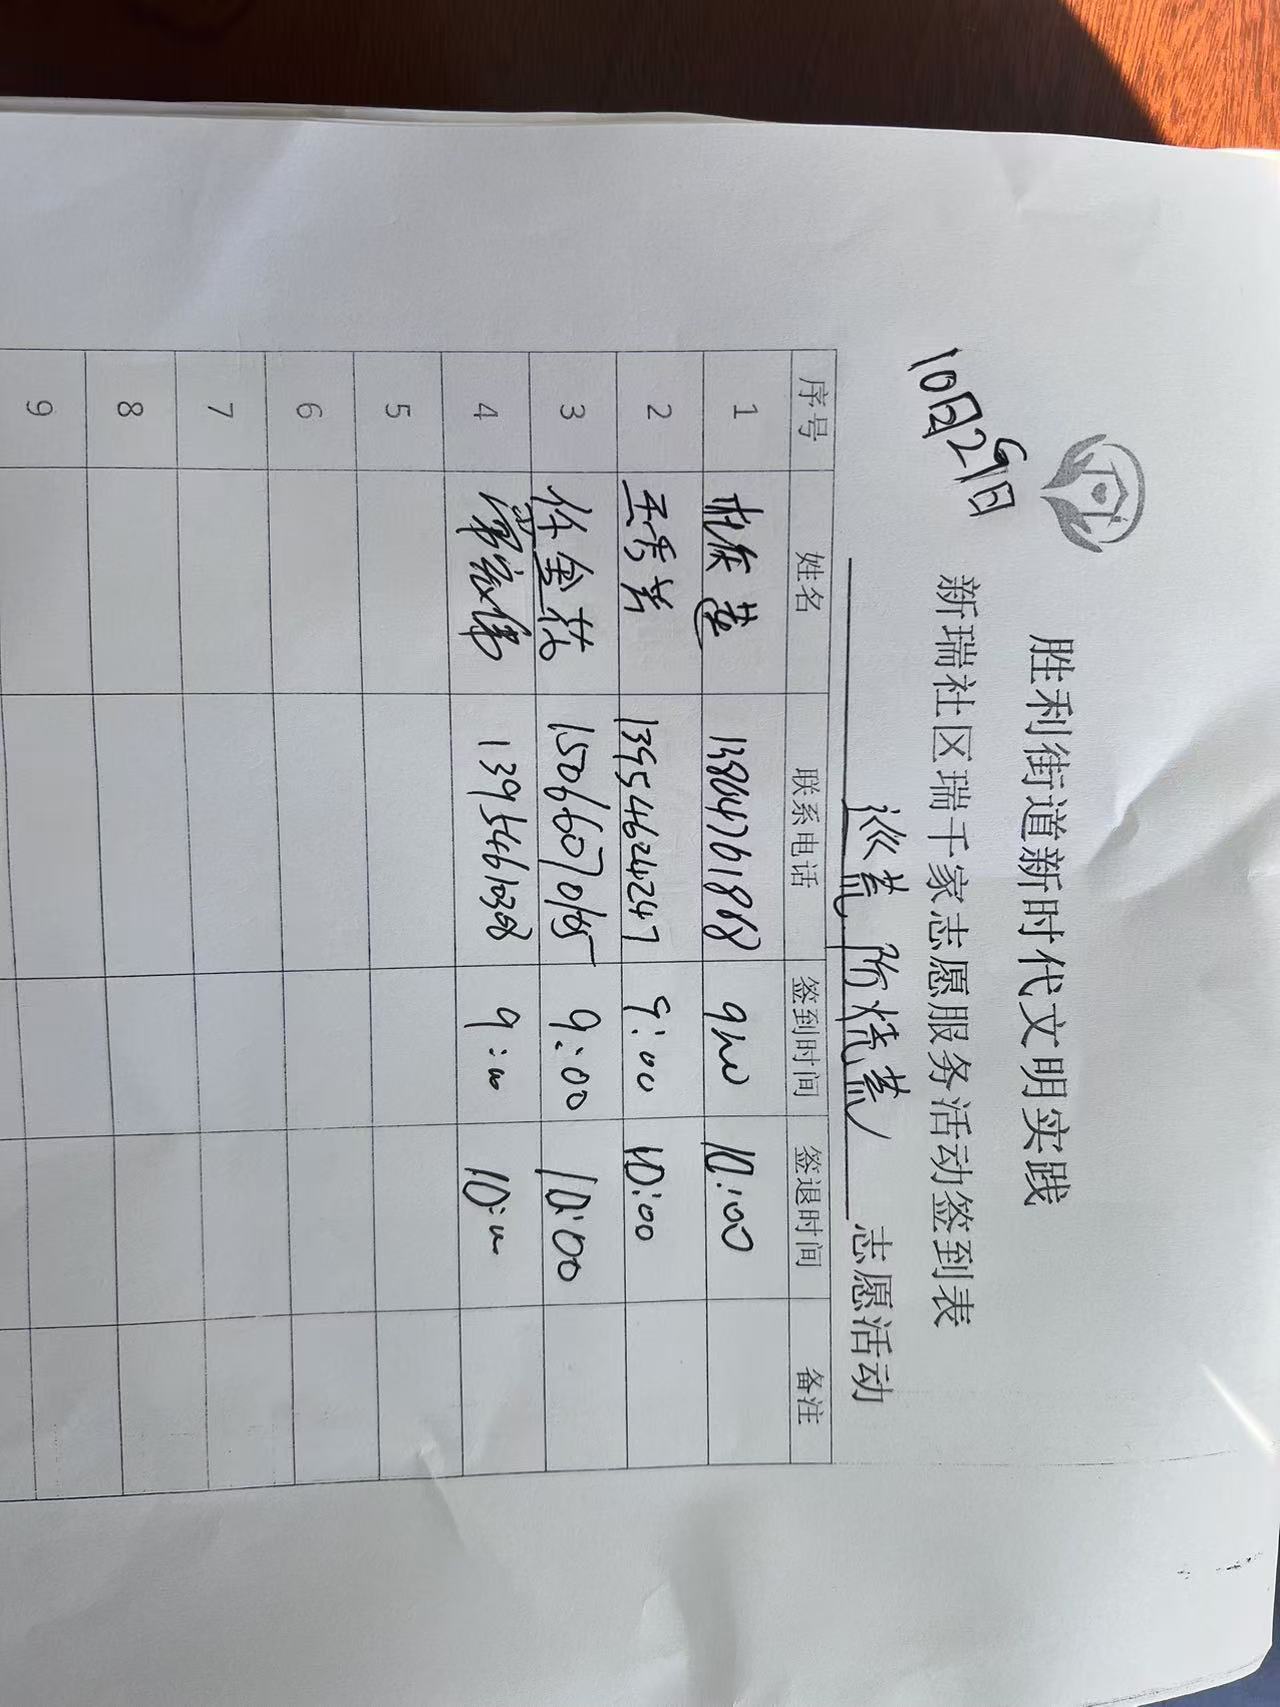 胜利街道新时代文明实践
新瑞社区瑞千家志愿服务活动签到表
10月29日
巡荒 防烧荒 志愿活动
序号 姓名 联系电话 签到时间 签退时间 备注
1 13804761868 9:00 10:00
2 王秀兰 13954624247 9:00 10:00
3 任金荻 15066070165 9:00 10:00
4 9:00 10:00
5
6
7
8
9